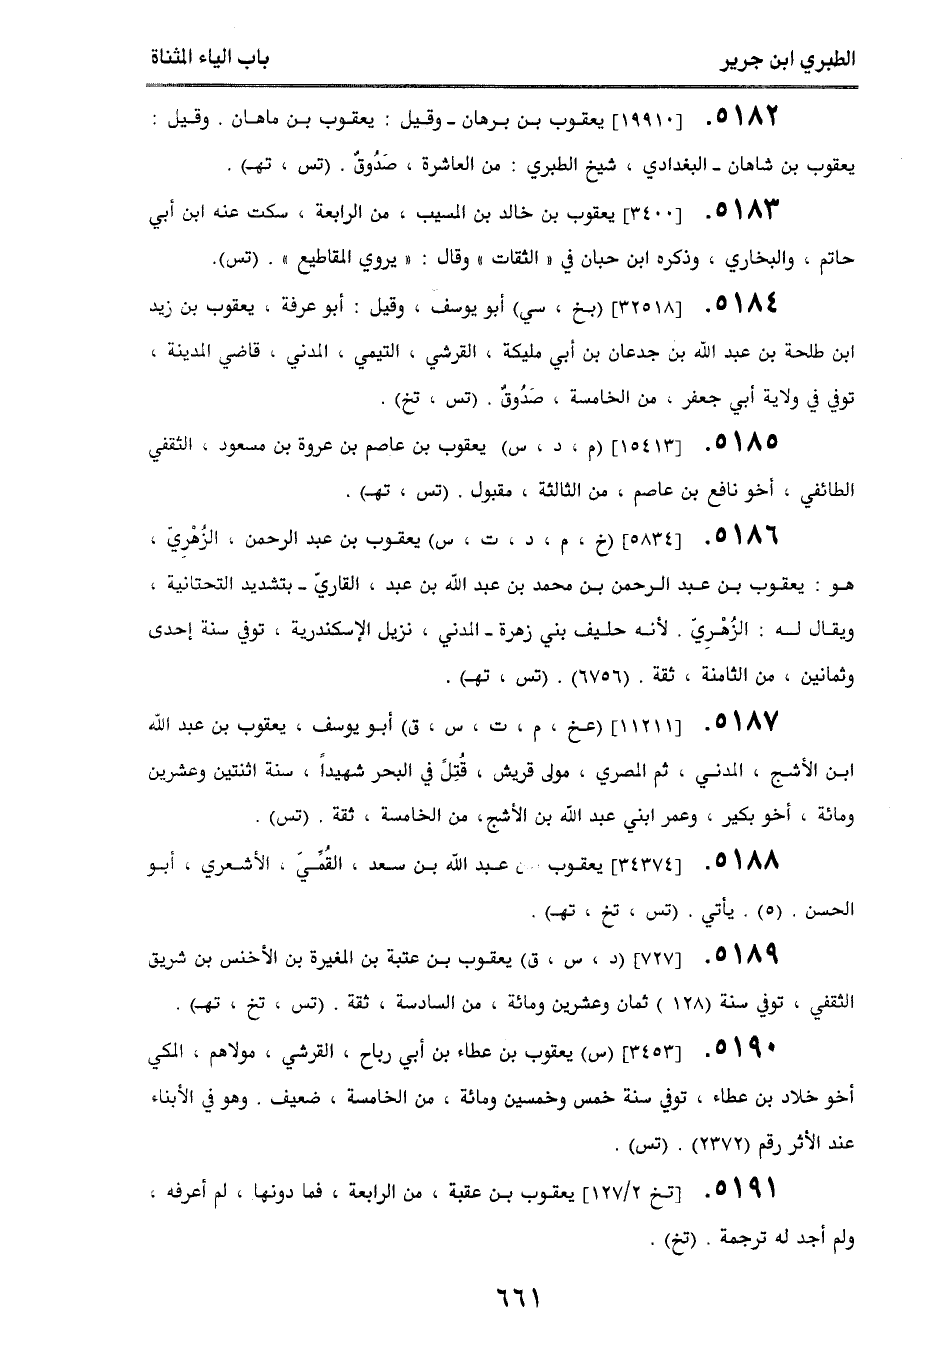 الطبري ابن جرير
باب الياء المثناة
٥١٨٢. [١٩٩١٠] يعقوب بن برهان ـ وقيل : يعقوب بن ماهان . وقيل :
يعقوب بن شاهان ـ البغدادي ، شيخ الطبري : من العاشرة ، صَدُوقٌ . (تس ، تهـ) .
٥١٨٣. [٣٤٠٠] يعقوب بن خالد بن المسيب ، من الرابعة ، سكت عنه ابن أبي
حاتم ، والبخاري ، وذكره ابن حبان في « الثقات » وقال : « يروي المقاطيع » . (تس).
٥١٨٤. [٣٢٥١٨] (بخ ، سي) أبو يوسف ، وقيل : أبو عرفة ، يعقوب بن زيد
ابن طلحة بن عبد الله بن جدعان بن أبي مليكة ، القرشي ، التيمي ، المدني ، قاضي المدينة ،
توفي في ولاية أبي جعفر ، من الخامسة ، صَدُوقٌ . (تس ، تخ) .
٥١٨٥. [١٥٤١٣] (م ، د ، س) يعقوب بن عاصم بن عروة بن مسعود ، الثقفي
الطائفي ، أخو نافع بن عاصم ، من الثالثة ، مقبول . (تس ، تهـ) .
٥١٨٦. [٥٨٣٤] (خ ، م ، د ، ت ، س) يعقوب بن عبد الرحمن ، الزُهْريّ ،
هو : يعقوب بن عبد الرحمن بن محمد بن عبد الله بن عبد ، القاريّ ـ بتشديد التحتانية ،
ويقال له : الزُهْريّ . لأنه حليف بني زهرة ـ المدني ، نزيل الإسكندرية ، توفي سنة إحدى
وثمانين ، من الثامنة ، ثقة . (٦٧٥٦) . (تس ، تهـ) .
٥١٨٧. [١١٢١١] (عخ ، م ، ت ، س ، ق) أبو يوسف ، يعقوب بن عبد الله
ابن الأشج ، المدني ، ثم المصري ، مولى قريش ، قُتِلَ في البحر شهيداً ، سنة اثنتين وعشرين
ومائة ، أخو بكير ، وعمر ابني عبد الله بن الأشج، من الخامسة ، ثقة . (تس) .
٥١٨٨. [٣٤٣٧٤] يعقوب بن عبد الله بن سعد ، القُمِّيّ ، الأشعري ، أبو
الحسن . (٥) . يأتي . (تس ، تخ ، تهـ) .
٥١٨٩. [٧٢٧] (د ، س ، ق) يعقوب بن عتبة بن المغيرة بن الأخنس بن شريق
الثقفي ، توفي سنة (١٢٨ ) ثمان وعشرين ومائة ، من السادسة ، ثقة . (تس ، تخ ، تهـ) .
٥١٩٠. [٣٤٥٣] (س) يعقوب بن عطاء بن أبي رباح ، القرشي ، مولاهم ، المكي
أخو خلاد بن عطاء ، توفي سنة خمس وخمسين ومائة ، من الخامسة ، ضعيف . وهو في الأبناء
عند الأثر رقم (٢٣٧٢) . (تس) .
٥١٩١. [تخ ١٢٧/٢] يعقوب بن عقبة ، من الرابعة ، فما دونها ، لم أعرفه ،
ولم أجد له ترجمة . (تخ) .
٦٦١